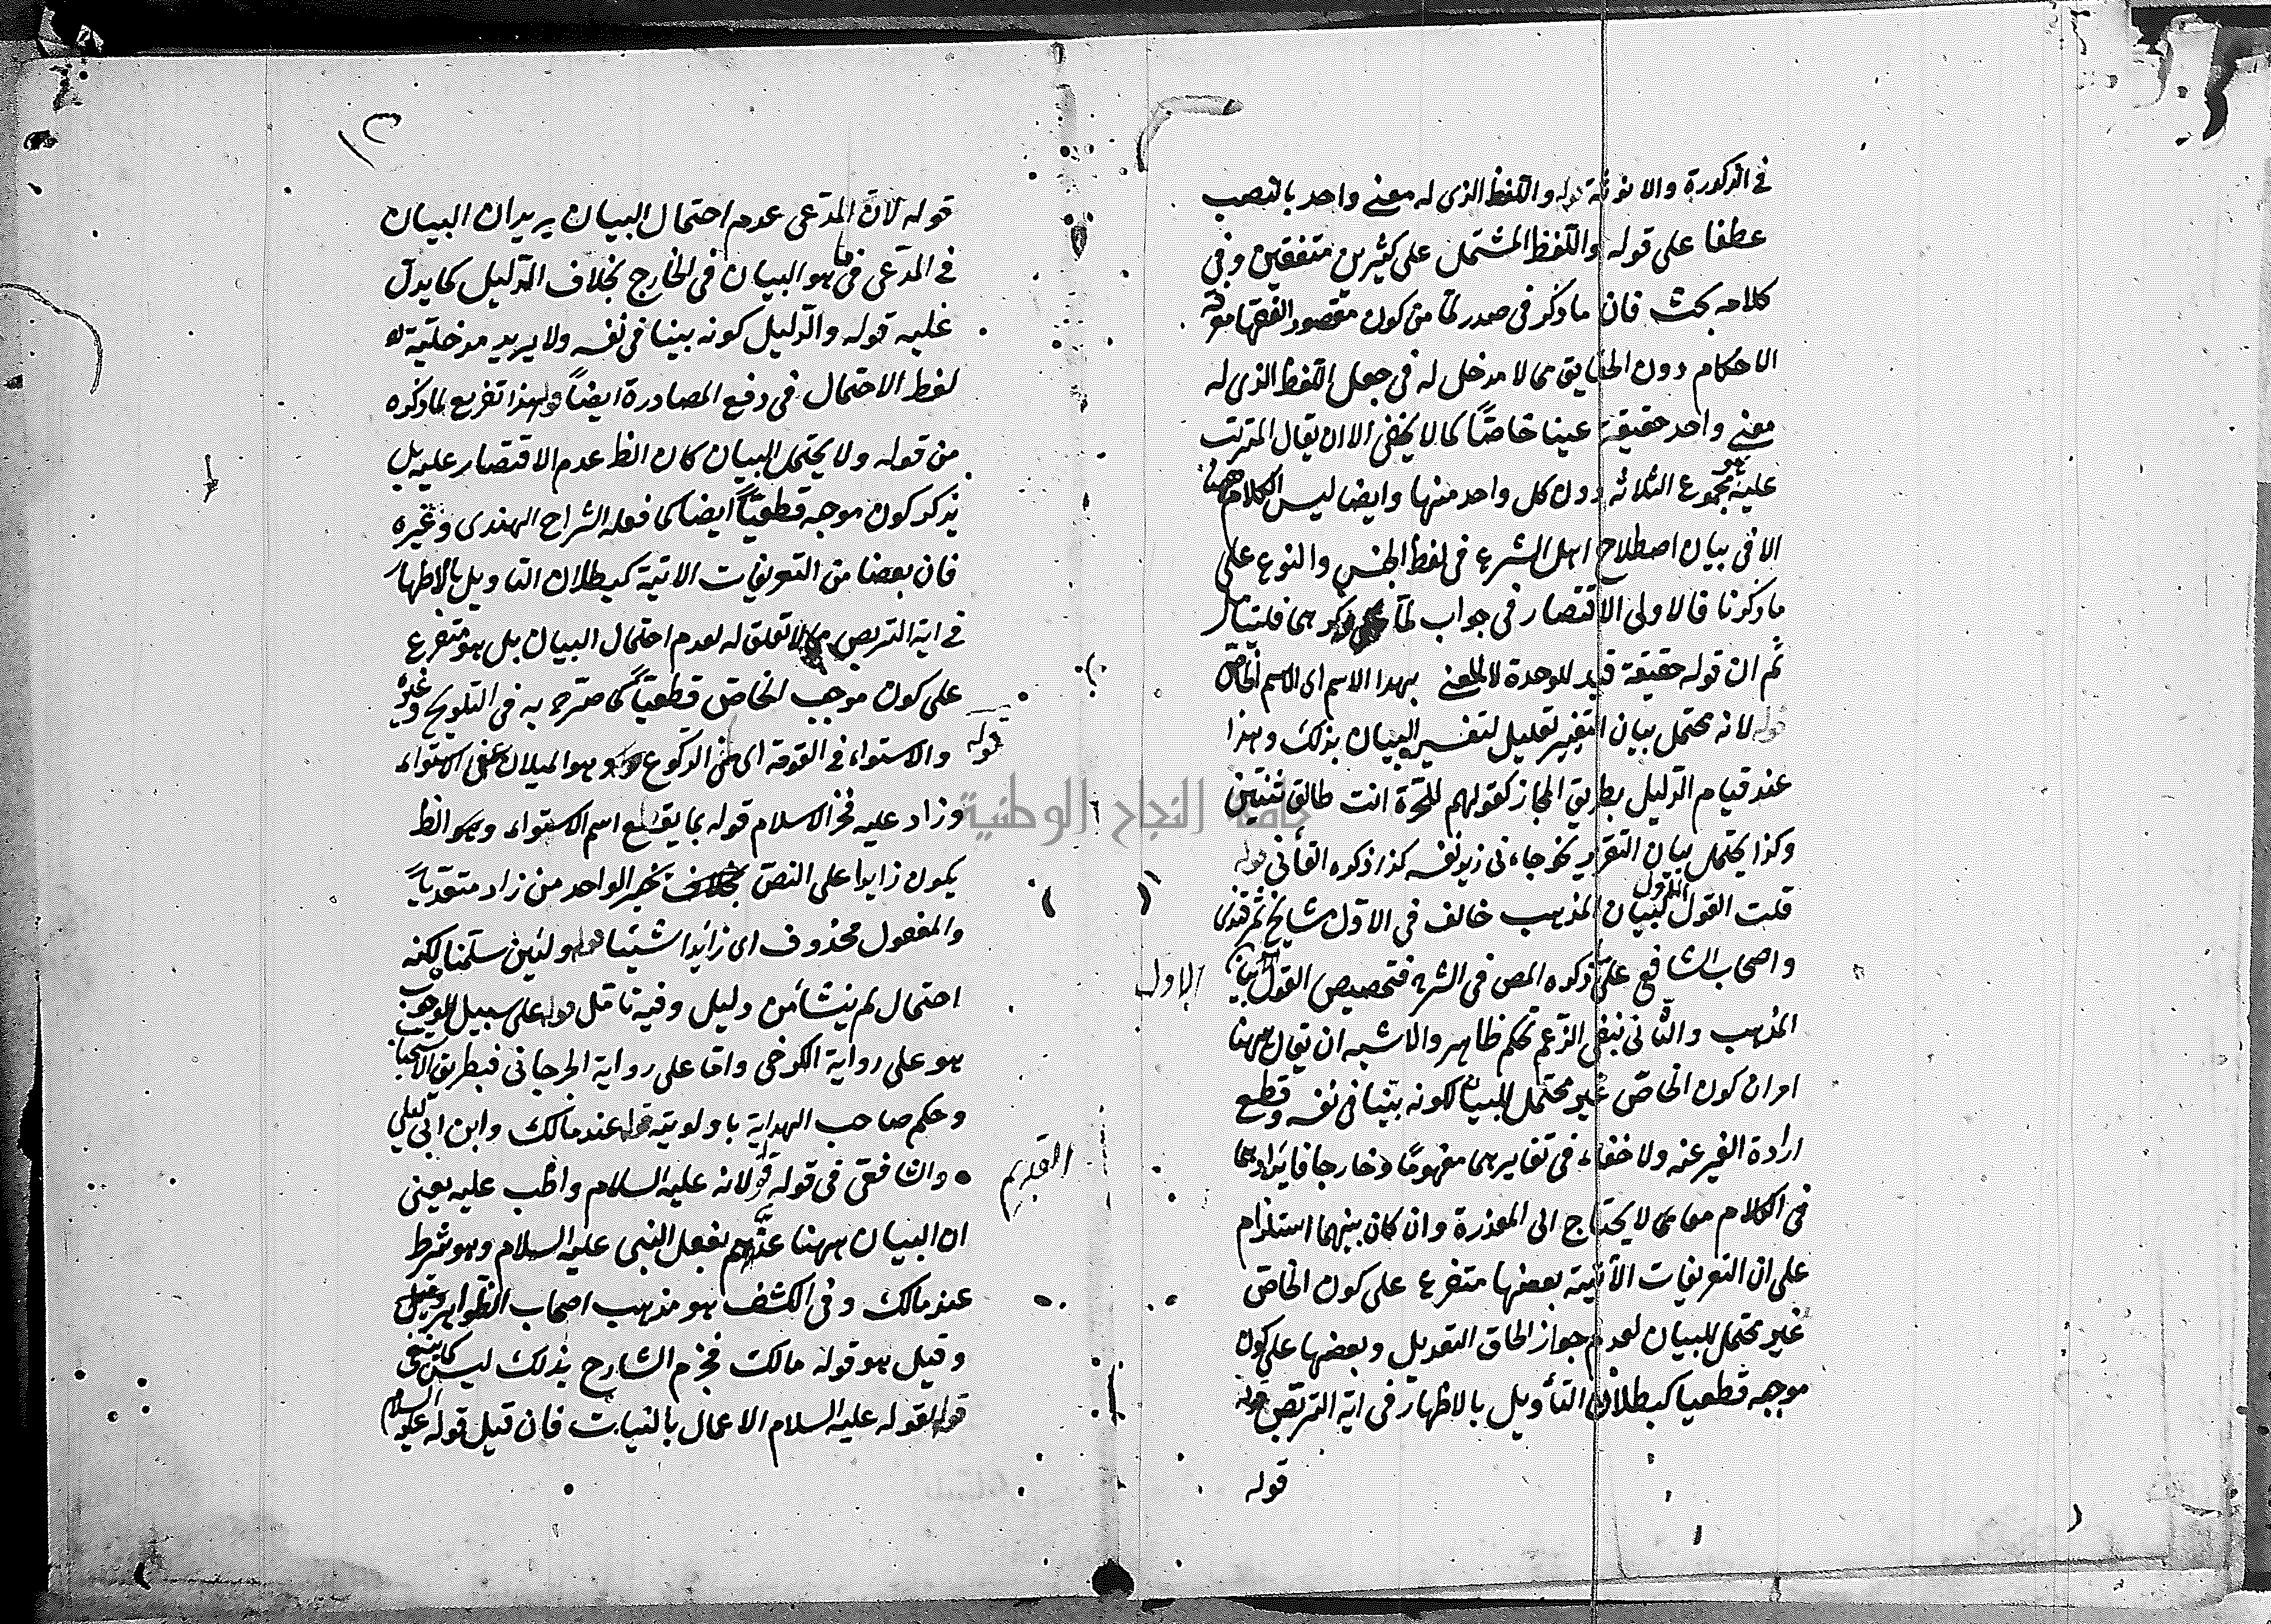 في الذكورة والانوثة قوله واللفظ الذى له معنى واحد بالنصب
عطفا على قوله واللفظ المشتمل على كثيرين متفقين وفى
كلامه بحث فان ما ذكر فى صدر لما من كون مقصود الفقها معرفة
الاحكام دون الحقايق مما لا مدخل له فى جعل اللفظ الذى له
معنى واحد حقيقة عينا خاصًّا كما لا يخفى الا ان يقال المترتب
عليه هو مجموع الثلاثه دون كل واحد منها وايضا ليس الكلام ههنا
الا فى بيان اصطلاح اهل الشرع فى لفظ الجنس والنوع على
ما ذكرنا فالاولى الاقتصار فى جواب لما فليتامل
ثم ان قوله حقيقة قيد للوحدة لا للمعنى بهذا الاسم اى الاسم الخاص
قوله لانه محتمل بيان التغيير تعليل لتفسير البيان بذلك وهذا
عند قيام الدليل بطريق المجاز كقولهم للحرة انت طالق ثنتين
وكذا يحتمل بيان التقرير نحو جاءنى زيد نفسه كذا ذكره القاآنى قوله
قلت القول الاول لبيان المذهب خالف فى الاول مشايخ سمرقندى
واصحاب الشافعى على ما ذكره المص فى الشرح فتخصيص القول الاول ببيان
المذهب والثانى بنفى الزعم تحكم ظاهر والاشبه ان يقال ههنا
امران كون الخاص غير محتمل للبيان لكونه بيّنا فى نفسه وقطع
ارادة الغير عنه ولا خفاء فى تغايرهما مفهومًا وخارجا فايرادهما
فى الكلام معا مما لا يحتاج الى المعذرة وان كان بينهما استلزام
على ان التعريفات الآتية بعضها متفرع على كون الخاص
غير محتمل للبيان لعدم جواز الحاق التعديل وبعضها على كون
موجبه قطعيا كبطلان التأويل بالاظهار فى اية التربص قوله
قوله
الاول
قوله لان المدّعى عدم احتمال البيان يريد ان البيان
في المدّعى فما هو البيان فى الخارج بخلاف الدليل كما يدل
عليه قوله والدليل كونه بينا فى نفسه ولا يريد مدخلية له
لفظ الاحتمال فى دفع المصادرة ايضاً قوله لهذا تفريع لما ذكره
من قوله ولا يحتمل البيان كان الظ عدم الاقتصار عليه بل
يذكر كون موجبه قطعيّاً ايضا كما فعله الشراح الهندى وغيره
فان بعضا من التعريفات الاتية كبطلان التاويل بالاظهار
فى اية التربص مما لا تعلق له لعدم احتمال البيان بل هو متفرع
على كون موجب الخاص قطعيّاً كما صرّح به فى التلويح وغيره
قوله والاستواء فى القومة اى من الركوع وهو الميلان عن الاستواء
وزاد عليه فخر الاسلام قوله بما يقطع اسم الاستواء وهو الظ
يكون زايدا على النص بخبر الواحد من زاد متعدياً
والمفعول محذوف اى زائدا شيئا قوله ولئن سلمنا لكنه
احتمال لم ينشأ من دليل وفيه تامل قوله على سبيل الوجوب
هو على رواية الكرخى واما على رواية الجرجانى فبطريق الاستحباب
وحكم صاحب الهداية باولويته قوله عند مالك وابن ابى ليلى
والشافعى فى قوله القديم لانه عليه السلام واظب عليه يعنى
ان البيان ههنا عندهم بفعل النبى عليه السلام وهو شرط
عند مالك وفى الكشف هو مذهب اصحاب الظواهر
وقيل هو قوله مالك فجزم الشارح بذلك ليس كما ينبغى
قوله لقوله عليه السلام الاعمال بالنيات فان قيل قوله عليه السلام
جامعة النجاح الوطنية